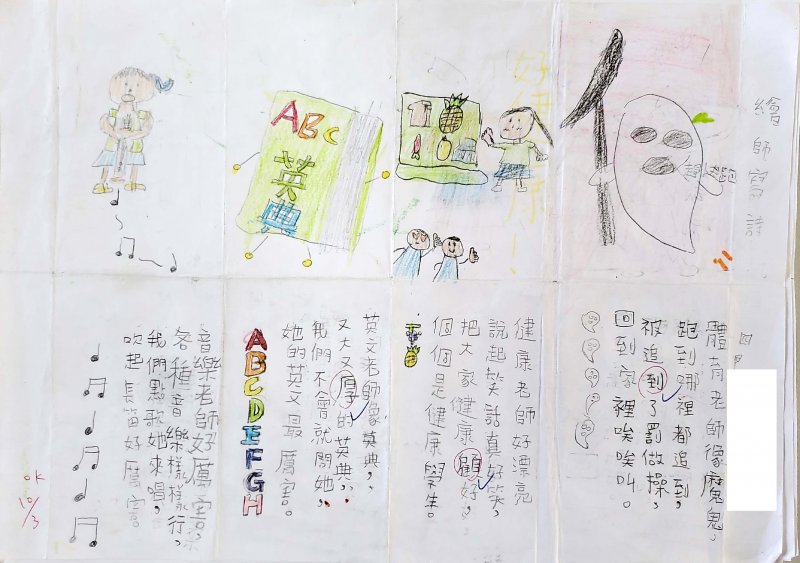 繪師寫詩
體育老師像魔鬼,
跑到哪裡都追到,
被追到了罰做操,
回到家裡唉唉叫。
好健康!
健康老師好漂亮
說起笑話真好笑,
把大家健康顧好,
個個是健康學生。
ABC
英典
英文老師像英典,
又大又厚的英典,
我們不會就問她,
她的英文最厲害。
ABCDEFGH
音樂老師好厲害,
各種音樂樣樣行,
我們點歌她來唱,
吹起長笛好厲害。
OK
10/3